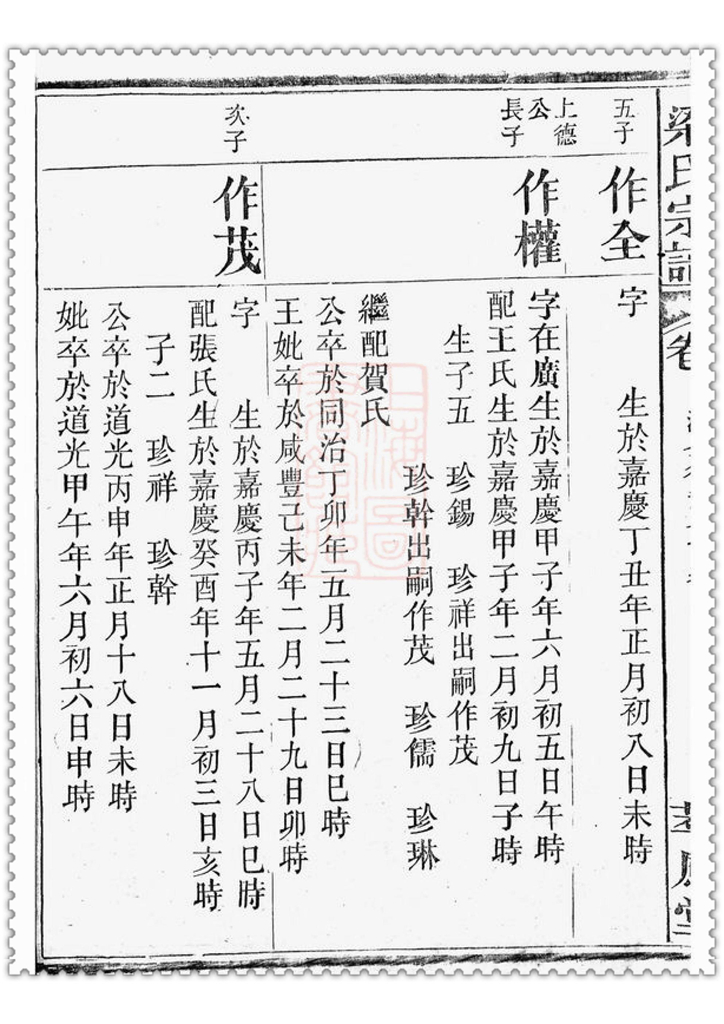 梁氏宗譜
卷
五子
作全
字　生於嘉慶丁丑年正月初八日未時
上德
公
長子
作權
字在廣生於嘉慶甲子年六月初五日午時
配王氏生於嘉慶甲子年二月初九日子時
生子五　珍錫　珍祥出嗣作茂
珍幹出嗣作茂　珍儒　珍琳
繼配賀氏
公卒於同治丁卯年五月二十三日巳時
王妣卒於咸豐己未年二月二十九日卯時
次子
作茂
字　生於嘉慶丙子年五月二十八日巳時
配張氏生於嘉慶癸酉年十一月初三日亥時
子二　珍祥　珍幹
公卒於道光丙申年正月十八日未時
妣卒於道光甲午年六月初六日申時